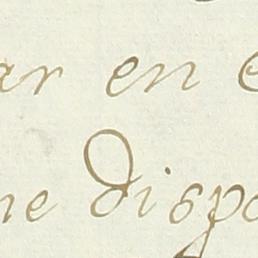 ar en e
ne dispo